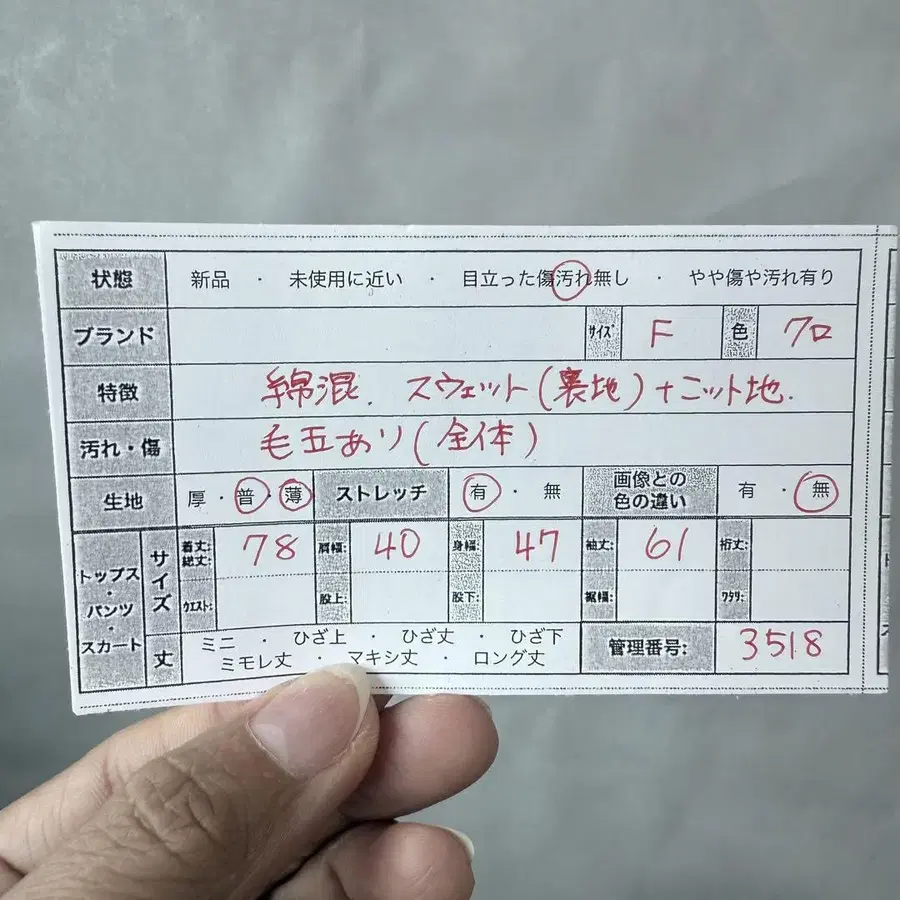 状態 新品 ・ 未使用に近い ・ 目立った傷汚れ無し ・ やや傷や汚れ有り
ブランド サイズ F 色 クロ
特徴 綿混. スウェット(裏地)+ニット地.
汚れ・傷 毛玉あり(全体)
生地 厚・普・薄 ストレッチ 有・無 画像との色の違い 有・無
トップス・パンツ・スカート サイズ 着丈:総丈: 78 肩幅: 40 身幅: 47 袖丈: 61 裄丈:
ウエスト: 股上: 股下: 裾幅: ワタリ:
丈 ミニ ・ ひざ上 ・ ひざ丈 ・ ひざ下
ミモレ丈 ・ マキシ丈 ・ ロング丈
管理番号: 3518